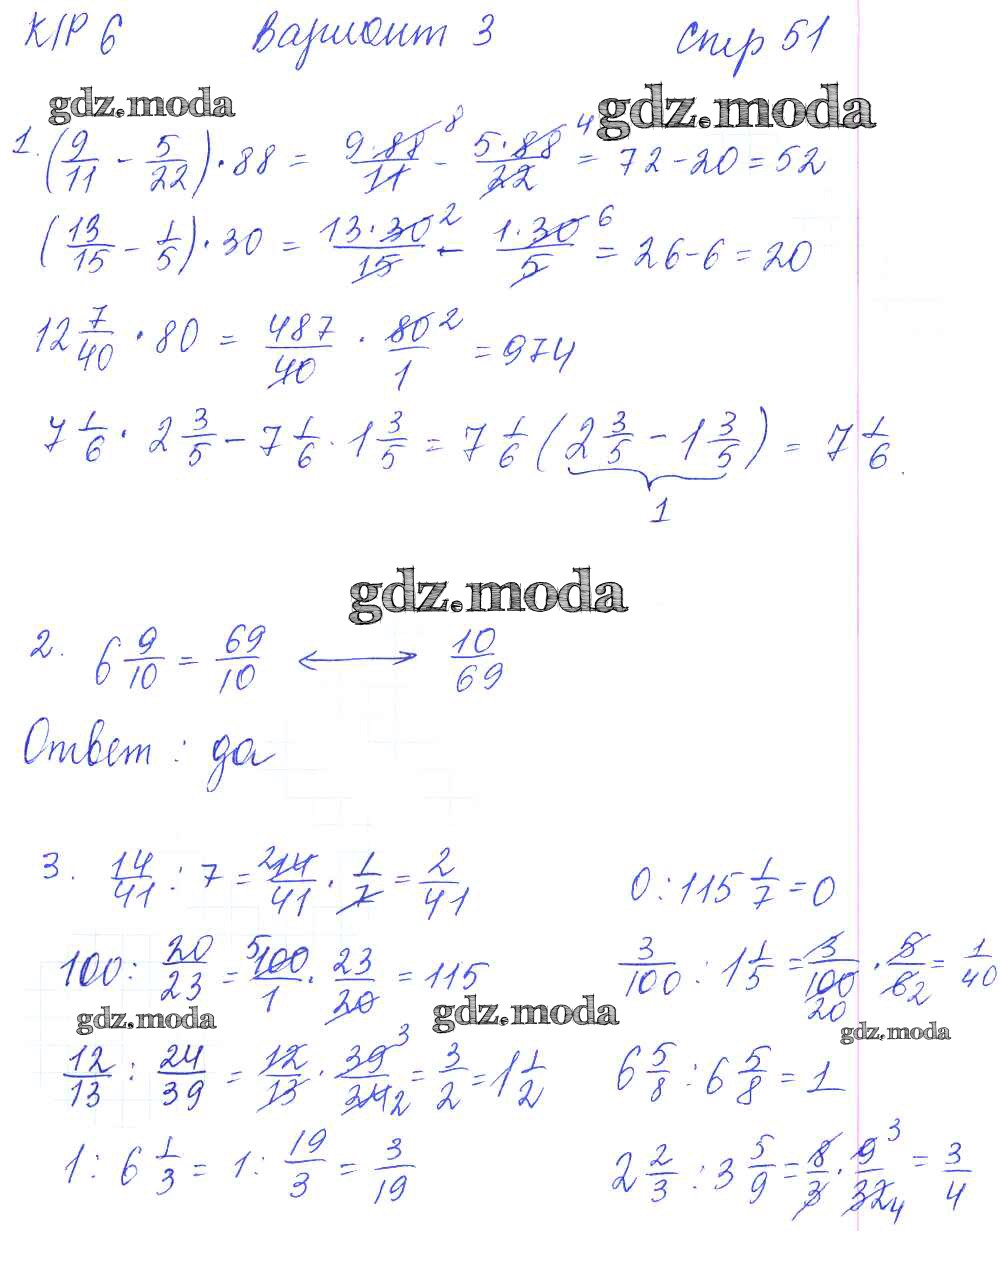 К/Р 6 Вариант 3 Стр 51
gdz.moda gdz.moda
1. (9/11 - 5/22) · 88 = 9·88/11 8 - 5·88/22 4 = 72 - 20 = 52
(13/15 - 1/5) · 30 = 13·30/15 2 - 1·30/5 6 = 26 - 6 = 20
12 7/40 · 80 = 487/40 · 80/1 2 = 974
7 1/6 · 2 3/5 - 7 1/6 · 1 3/5 = 7 1/6 (2 3/5 - 1 3/5) = 7 1/6
1
gdz.moda
2. 6 9/10 = 69/10 ⟷ 10/69
Ответ : да
3. 14/41 : 7 = 2 14/41 · 1/7 = 2/41 0 : 115 1/7 = 0
100 : 20/23 = 5 100/1 · 23/20 = 115 3/100 : 1 1/5 = 3/100 20 · 5/6 2 = 1/40
gdz.moda gdz.moda gdz.moda
12/13 : 24/39 = 12/13 · 39/24 3 2 = 3/2 = 1 1/2 6 5/8 : 6 5/8 = 1
1 : 6 1/3 = 1 : 19/3 = 3/19 2 2/3 : 3 5/9 = 8/3 · 9/32 3 4 = 3/4